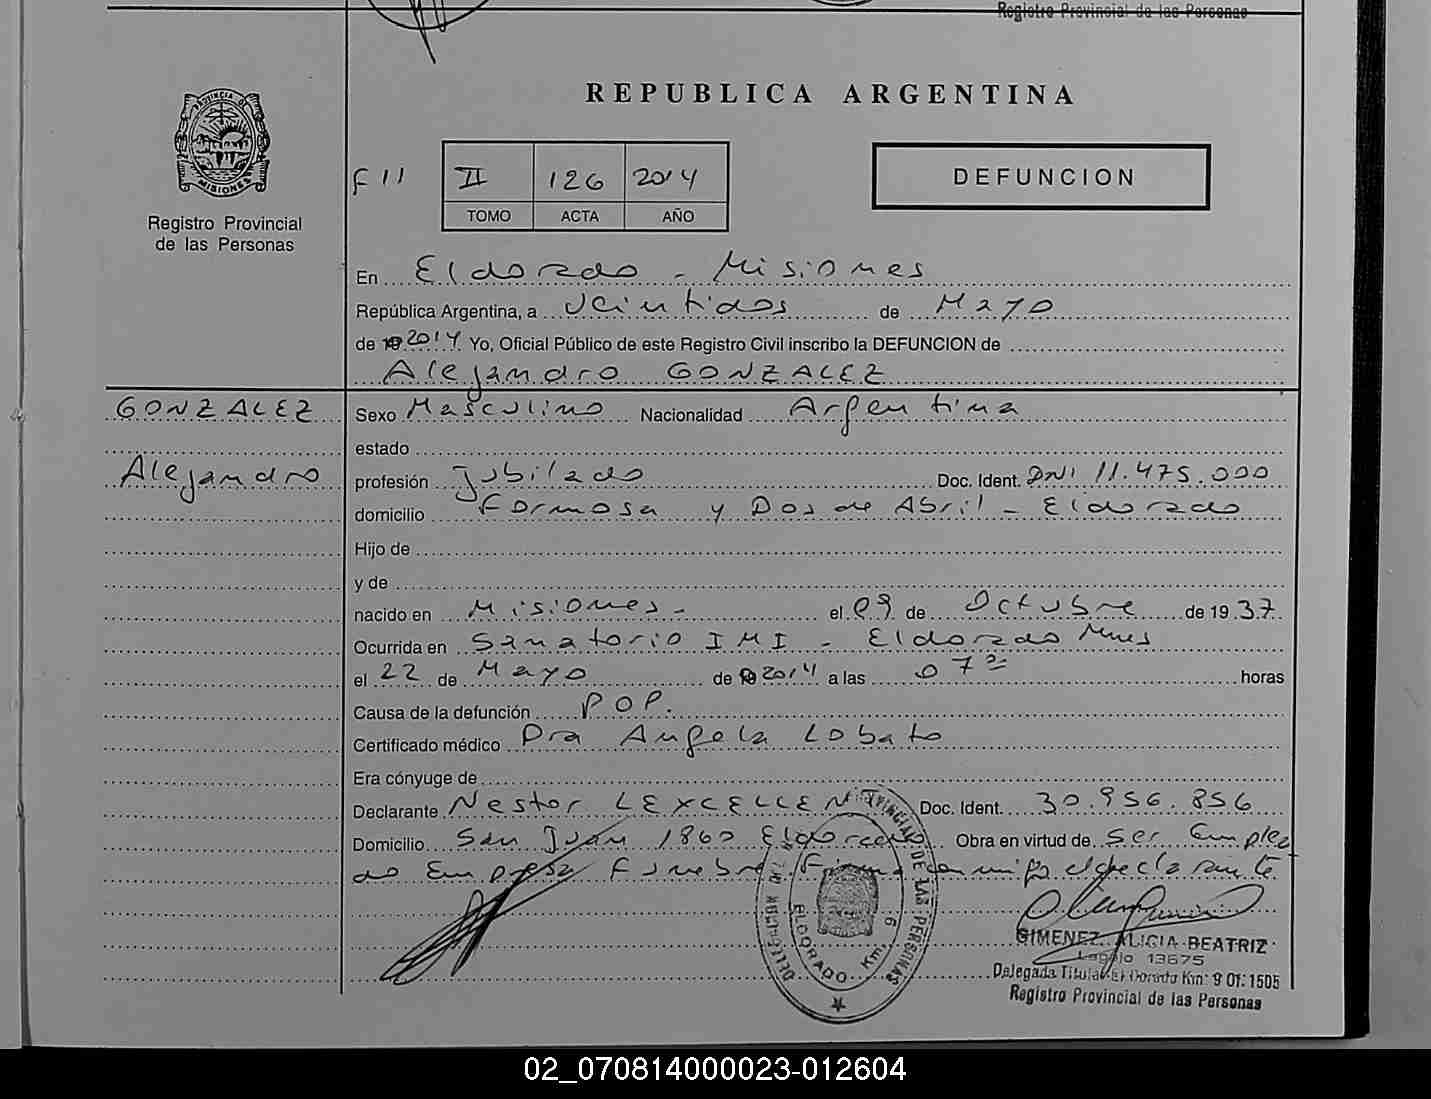 Registro Provincial de las Personas
REPUBLICA ARGENTINA
PROVINCIA DE
MISIONES
Registro Provincial
de las Personas
F 11
II 126 2014
TOMO ACTA AÑO
DEFUNCION
En Eldorado - Misiones
República Argentina, a Veintidos de Mayo
de 2014 Yo, Oficial Público de este Registro Civil inscribo la DEFUNCION de
Alejandro GONZALEZ
GONZALEZ
Alejandro
Sexo Masculino Nacionalidad Argentina
estado
profesión Jubilado Doc. Ident. DNI 11.475.000
domicilio Formosa y Dos de Abril - Eldorado
Hijo de
y de
nacido en Misiones - el 09 de Octubre de 1937
Ocurrida en Sanatorio IMI - Eldorado Mnes
el 22 de Mayo de 2014 a las 07 horas
Causa de la defunción POP.
Certificado médico Dra Angela Lobato
Era cónyuge de
Declarante Nestor LEXCELLENT Doc. Ident. 30.956.856
Domicilio San Juan 1860 Eldorado Obra en virtud de Ser Emplea
do Empresa Funebre Firma conmigo el declarante
PROVINCIAL DE LAS PERSONAS
ELDORADO Km. 9
GIMENEZ, ALICIA BEATRIZ
Legajo 13675
Delegada Titular El Dorado Km. 9 Of. 1505
Registro Provincial de las Personas
02_070814000023-012604